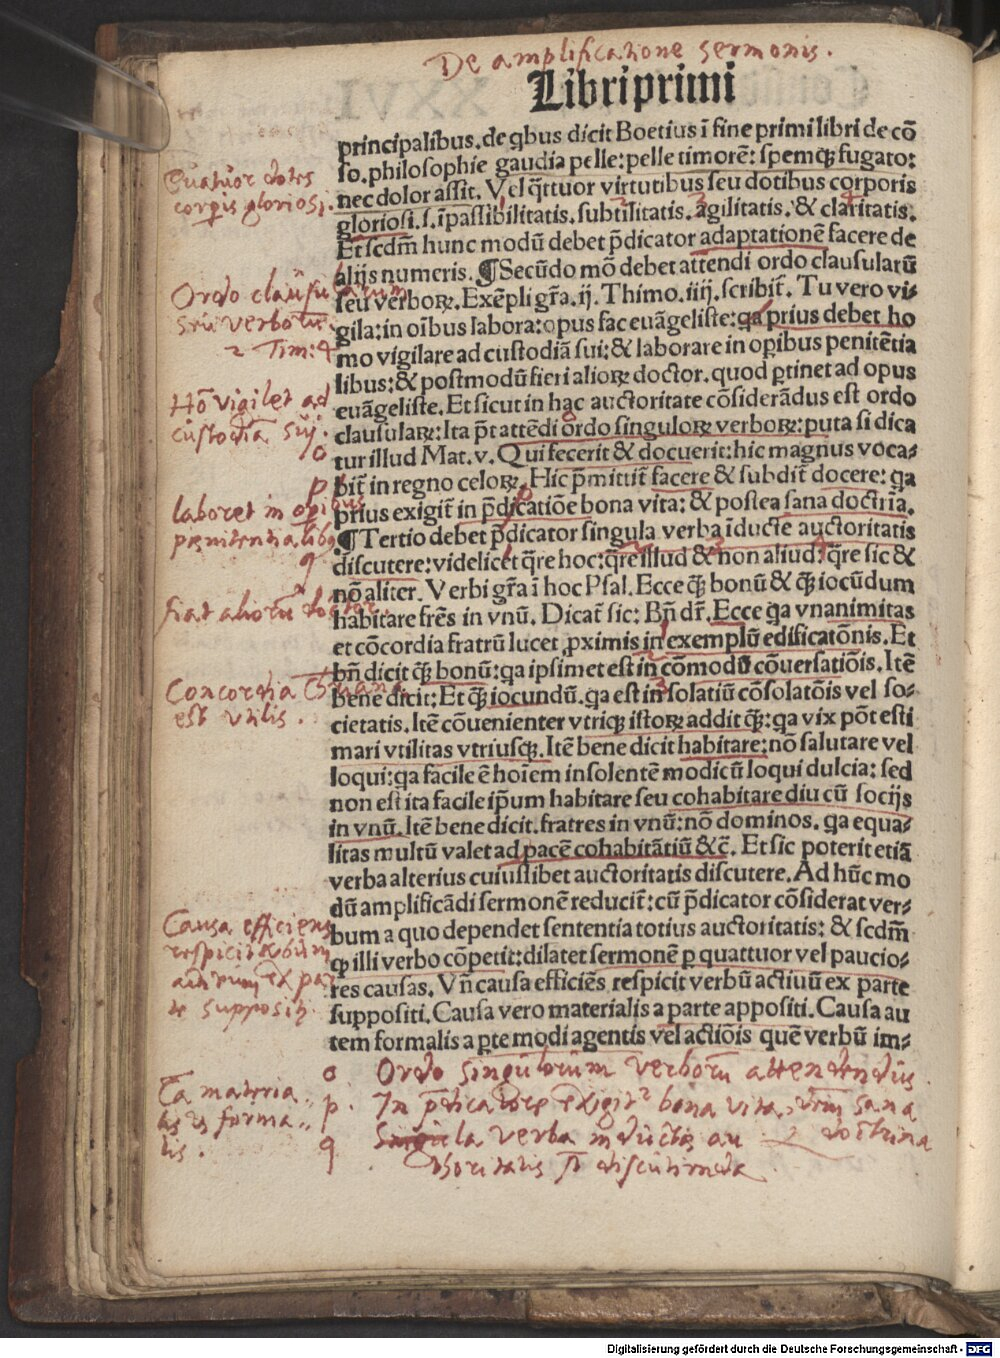 De amplificatione sermonis.
Libri primi
principalibus. de qbus dicit Boetius ī fine primi libri de cō
so. philosophie gaudia pelle: pelle timorē: spemqꝫ fugato:
nec dolor assit. Vel q̄ttuor virtutibus seu dotibus corporis
gloriosi. s. īpassibilitatis. subtilitatis. agilitatis. & claritatis.
Et scdm̄ hunc modū debet p̄dicator adaptationē facere de
alijs numeris. ¶ Secūdo mō debet attendi ordo clausularū
seu verboꝝ. Exēpli gr̄a. ij. Thimo. iiij. scribit̄. Tu vero vi⸗
gila: in oībus labora: opus fac euāgeliste: qa prius debet ho
mo vigilare ad custodiā sui: & laborare in oꝑibus penitētia
libus: & postmodū fieri alioꝝ doctor. quod ꝑtinet ad opus
euāgeliste. Et sicut in hac auctoritate cōsiderādus est ordo
clausulaꝝ: Ita p̄t attēdi ordo singuloꝝ verboꝝ: puta si dica
tur illud Mat. v. Qui fecerit & docuerit: hic magnus voca⸗
bit̄ in regno celoꝝ. Hic p̄mittit̄ facere & subdit̄ docere: qa
prius exigit̄ in p̄dicatiōe bona vita: & postea sana doctrīa.
¶ Tertio debet p̄dicator singula verba īducte auctoritatis
discutere: videlicet q̄re hoc: q̄re illud & non aliud: q̄re sic &
nō aliter. Verbi gr̄a ī hoc Psal. Ecce qꝫ̄ bonū & qꝫ̄ iocūdum
habitare fr̄es in vnū. Dicat̄ sic: Bn̄ dr̄. Ecce qa vnanimitas
et cōcordia fratrū lucet ꝓximis in exemplū edificatōnis. Et
bn̄ dicit qꝫ̄ bonū: qa ipsimet est in cōmodū cōuersatiōis. Itē
bene dicit: Et qꝫ̄ iocundū. qa est in solatiū cōsolatōis vel so⸗
cietatis. Itē cōuenienter vtriqꝫ istoꝝ addit qꝫ̄: qa vix pōt esti
mari vtilitas vtriusqꝫ. Itē bene dicit habitare: nō salutare vel
loqui: qa facile ē hoīem insolentē modicū loqui dulcia: sed
non est ita facile ip̄um habitare seu cohabitare diu cū socijs
in vnū. Itē bene dicit. fratres in vnū: nō dominos. qa equa⸗
litas multū valet ad pacē cohabitātiū &c̄. Et sic poterit etiā
verba alterius cuiuslibet auctoritatis discutere. Ad hūc mo
dū amplificādi sermonē reducit̄: cū p̄dicator cōsiderat ver⸗
bum a quo dependet sententia totius auctoritatis: & scdm̄
qꝫ illi verbo cōpetit: dilatet sermonē ꝑ quattuor vel paucio⸗
res causas. Vn̄ causa efficiēs respicit verbū actiuū ex parte
suppositi. Causa vero materialis a parte appositi. Causa au
tem formalis a ꝑte modi agentis vel actiōis quē verbū im⸗
Quatuor dotes
corꝑis gloriosi.
Ordo clausularum
seu verborū.
2 Tim: 4
Hō vigilet ad
custodiā sui.
o
p
laboret in oꝑibus
pænitentialibꝰ
q
fiat aliorū doctor.
Concordia
est vtilis.
Causa efficiens
respicit verbum
actiuum ex par
te suppositi.
Cā materia
lis et forma
lis.
o Ordo singulorum verborū attendendus.
p. In p̄dicatore exigitr bona vita, sana
doctrina
q Singula verba inductæ au
thoritatis st̄ discutienda
Digitalisierung gefördert durch die Deutsche Forschungsgemeinschaft - DFG